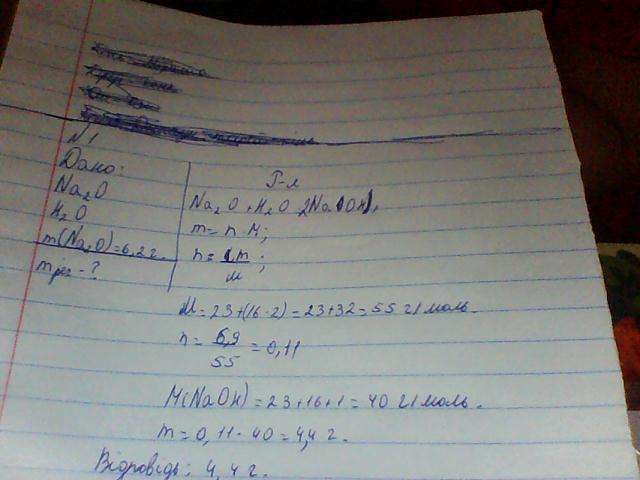 N1
Дано:
Na₂O
H₂O
m(Na₂O)=6,2 г.
m рез - ?
Р-я
Na₂O + H₂O 2Na(OH),
m = n · M;
n = m/M ;
M = 23+(16·2) = 23+32 = 55 г/моль.
n = 6,2/55 = 0,11
M(NaOH) = 23+16+1 = 40 г/моль.
m = 0,11 · 40 = 4,4 г.
Відповідь: 4,4 г.